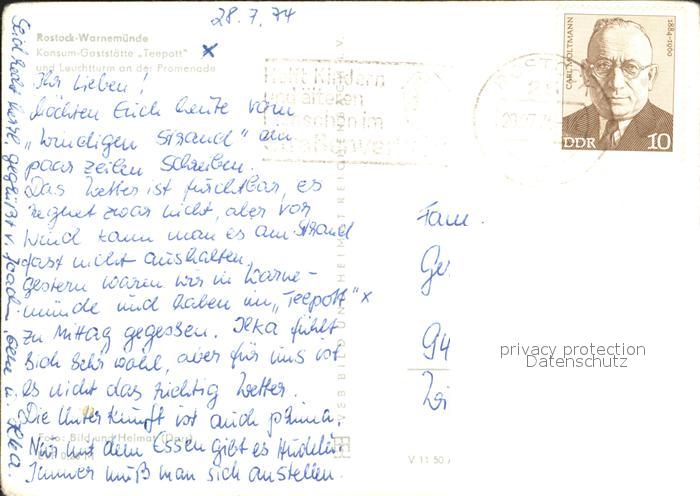 28.7.74
Rostock-Warnemünde
Konsum-Gaststätte „Teepott"
und Leuchtturm an der Promenade
x
Ihr Lieben!
Möchten Euch heute vom
„Windigen Strand" ein
paar Zeilen schreiben.
Das Wetter ist furchtbar, es
regnet zwar nicht, aber vor
Wind kann man es am Strand
fast nicht aushalten.
Gestern waren wir in Warne-
münde und haben im „Teepott" x
zu Mittag gegessen. Ilka fühlt
sich sehr wohl, aber für uns ist
es nicht das richtig Wetter.
Die Unterkunft ist auch prima.
Nur mit dem Essen gibt es
Immer muß man sich anstellen.
Seid recht herzl. gegrüßt v. u. Ilka.
Foto: Bild und Heimat
VEB BILD UND HEIMAT REICHENBACH
V 11 50
Helft Kindern
und älteren
Menschen im
Straßenverkehr
ROSTOCK
CARL MOLTMANN
1884-1960
DDR
10
Fam.
Ge
94
privacy protection
Datenschutz